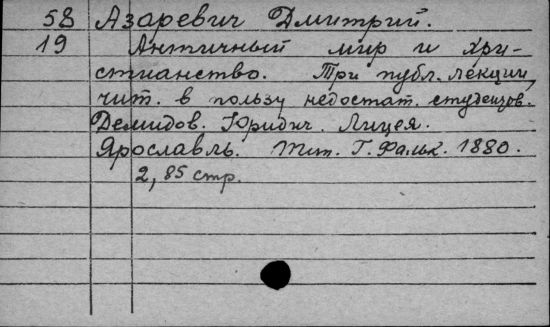 58 Азаревич Дмитрий.
19 Античный мир и хри-
стианство. Три публ. лекции,
чит. в пользу недостат. студентов.
Демидов. Юридич. Лицея.
Ярославль. Тип. Г. Фальк. 1880.
2, 85 стр.